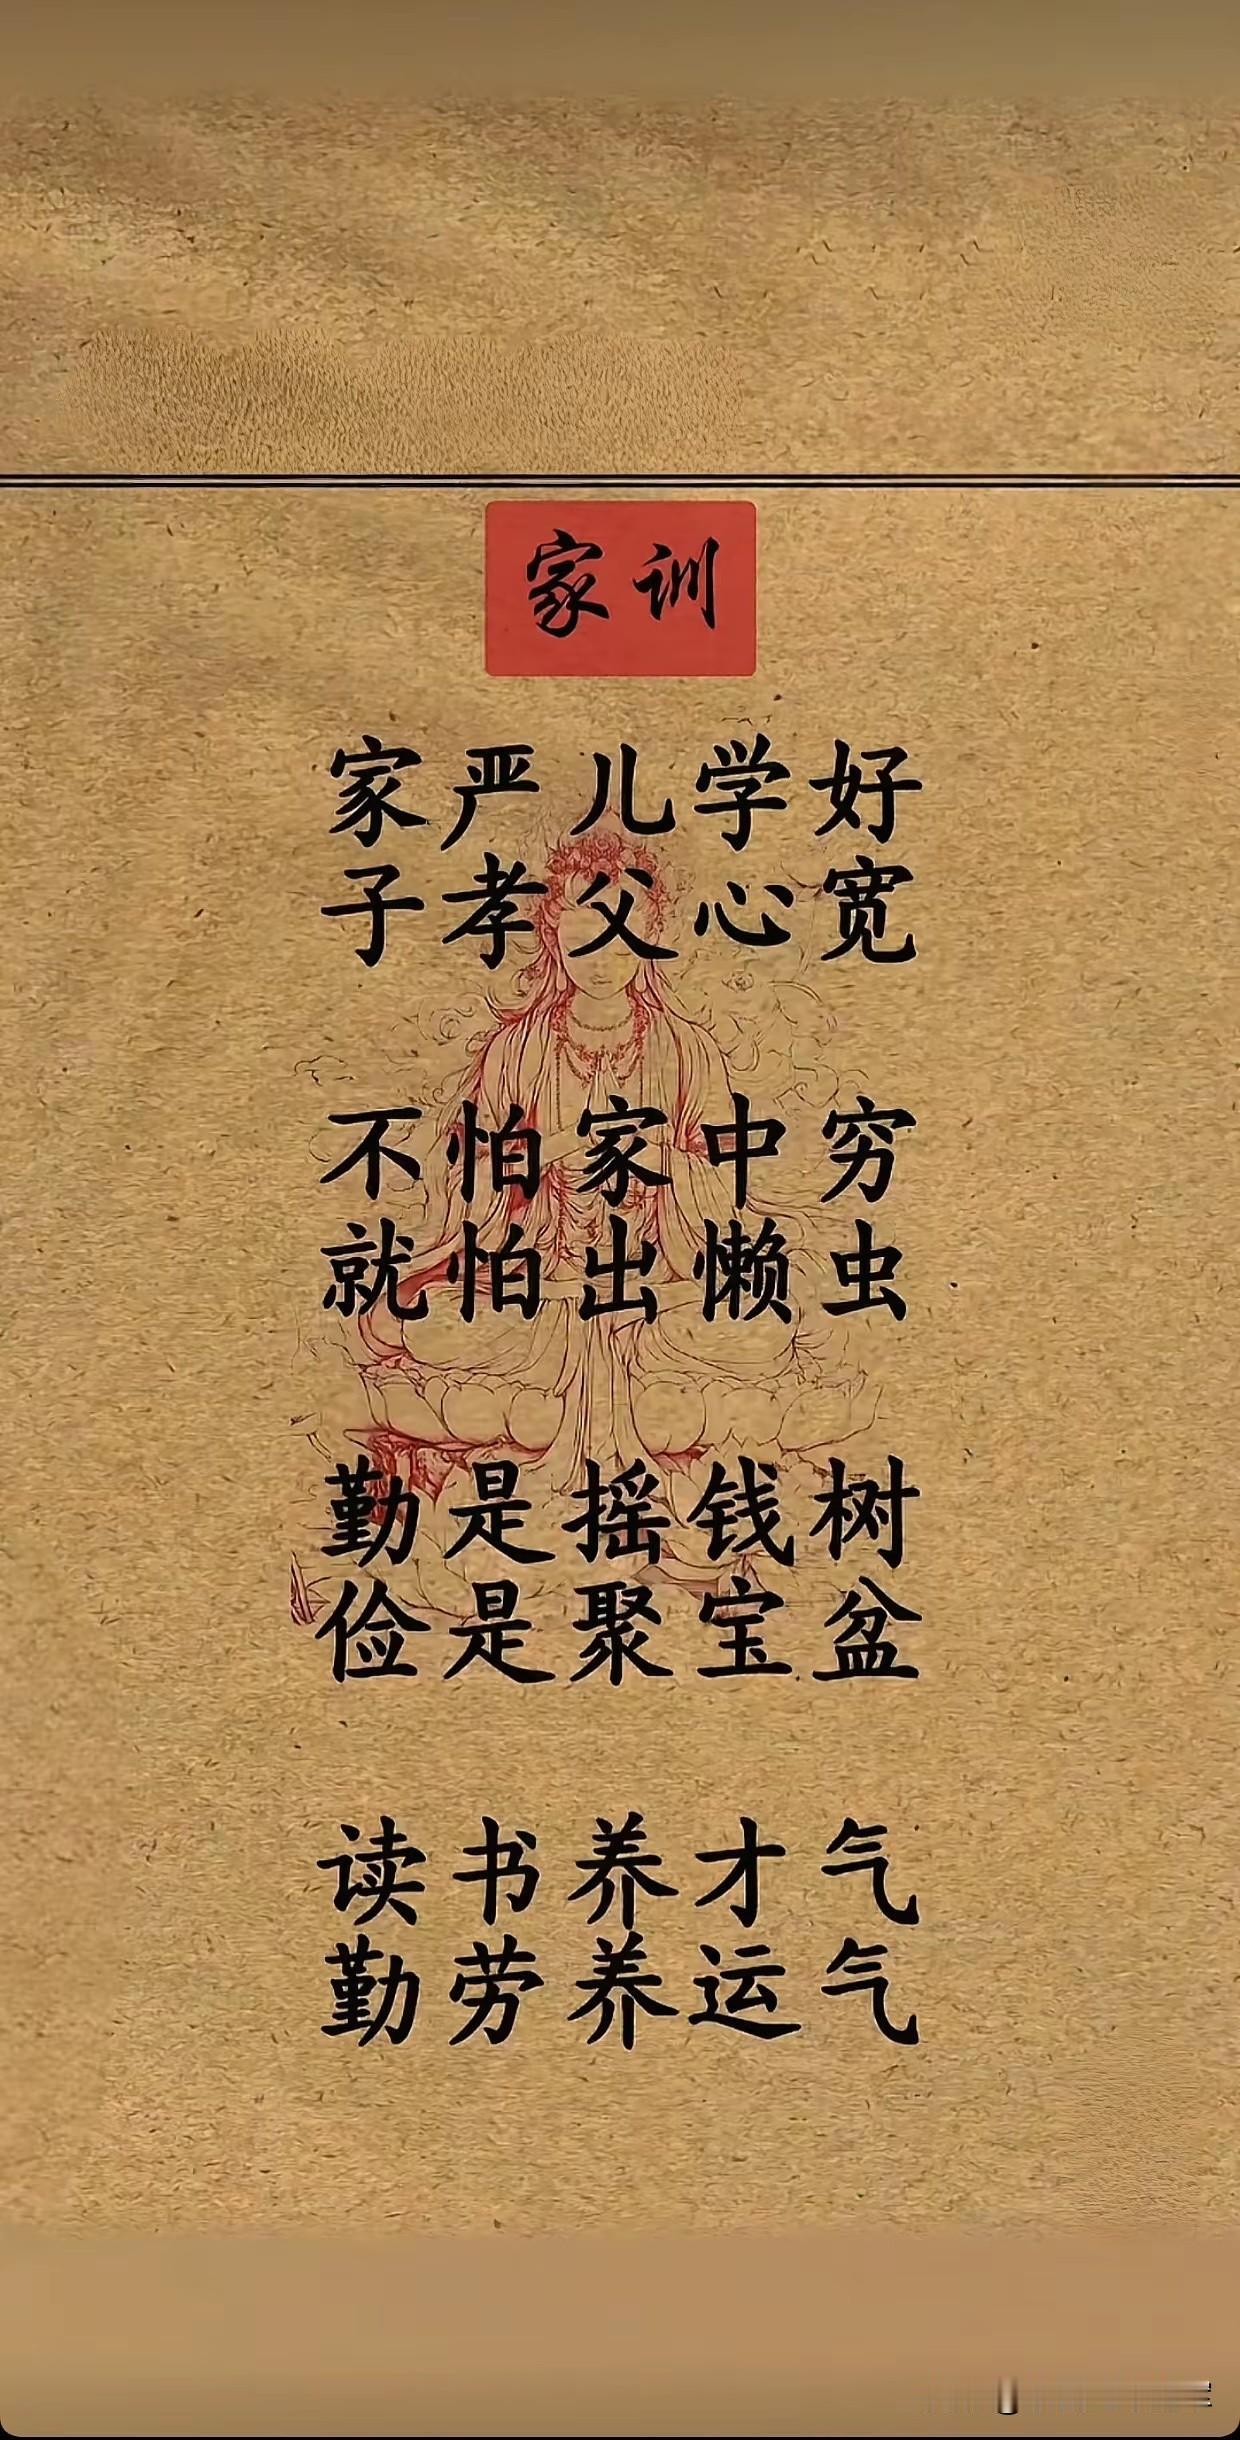 家训
家严儿学好
子孝父心宽
不怕家中穷
就怕出懒虫
勤是摇钱树
俭是聚宝盆
读书养才气
勤劳养运气